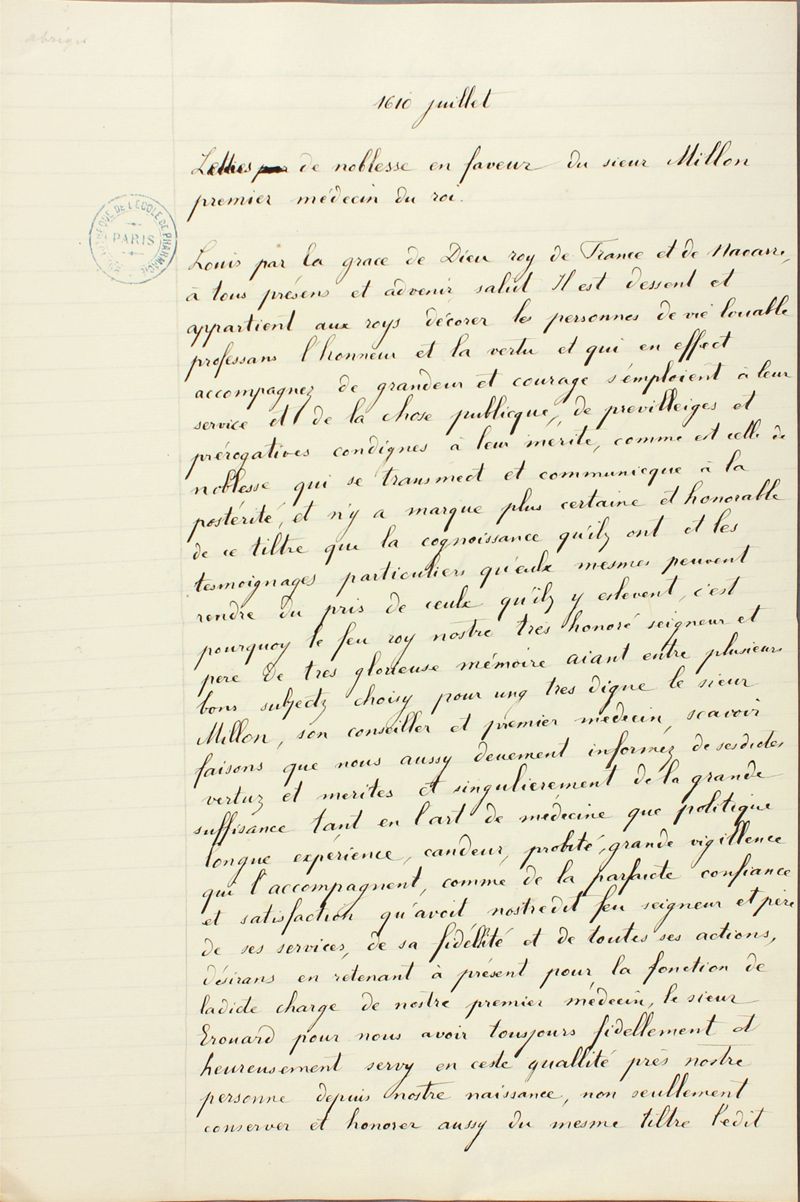 abrégé
1610 juillet
Lettres de noblesse en faveur du sieur Millon
premier médecin du roi.
BIBLIOTHÈQUE DE L'ÉCOLE DE PHARMACIE
PARIS
Louis par la grace de Dieu roy de France et de Navarre,
à tous présens et advenir salut Il est dessent et
appartient aux roys décorer les personnes de vie louable
professans l'honneur et la vertu et qui en effect
accompagnez de grandeur et courage s'emploient à leur
service et de la chose publicque, de previlleiges et
prérogatives condignes à leur merite, comme est celle de
noblesse qui se transmect et communicque à la
postérité, et n'y a marque plus certaine et honorable
de ce tiltre que la cognoissance qu'ilz ont et les
tesmoignages particuliers qu'eulx mesmes peuvent
rendre du pris de ceulx qu'ilz y eslevent, c'est
pourquoy le feu roy nostre très honoré seigneur et
pere de tres glorieuse mémoire aiant entre plusieurs
bons subjectz choisy pour ung tres digne le sieur
Millon, son conseiller et premier medecin, scavoir
faisons que nous aussy deuement informez de sesdictes
vertuz et merites et singulierement de la grande
suffisance tant en l'art de medecine que politique
longue expérience, candeur, probité, grande vigillence
qui l'accompagnent, comme de la parfaicte confiance
et satisfaction qu'avoit nostredit feu seigneur et père
de ses services, de sa fidélité et de toutes ses actions,
désirans en retenant à présent pour la fonction de
ladicte charge de nostre premier médecin, le sieur
Erouard pour nous avoir tousjours fidellement et
heureusement servy en ceste quallité près nostre
personne depuis nostre naissance, non seullement
conserver et honorer aussy du mesme tiltre ledit